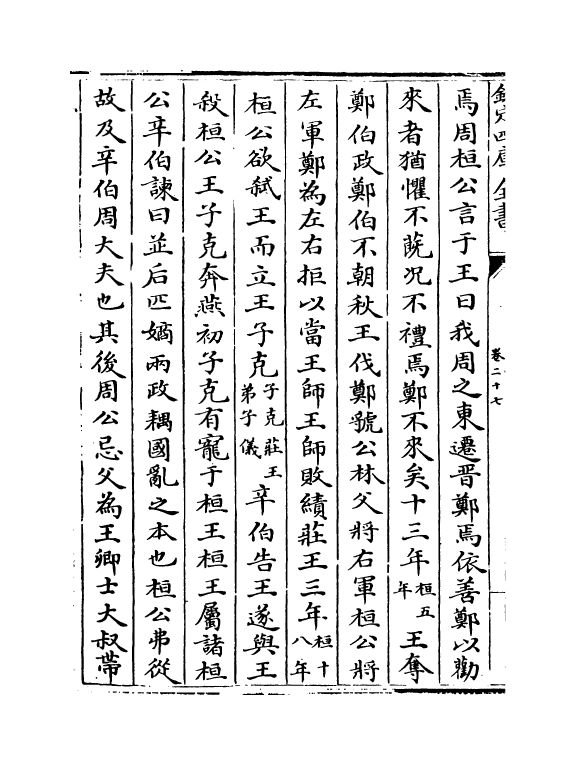 欽定四庫全書
卷二十七
焉周桓公言于王曰我周之東遷晉鄭焉依善鄭以勸
來者猶懼不蔇况不禮焉鄭不來矣十三年桓五年王奪
鄭伯政鄭伯不朝秋王伐鄭虢公林父將右軍桓公將
左軍鄭為左右拒以當王師王師敗績莊王三年桓十八年
桓公欲弑王而立王子克子克莊王弟子儀辛伯告王遂與王
殺桓公王子克奔燕初子克有寵于桓王桓王屬諸桓
公辛伯諫曰並后匹嫡兩政耦國亂之本也桓公弗從
故及辛伯周大夫也其後周公忌父為王卿士大叔帶